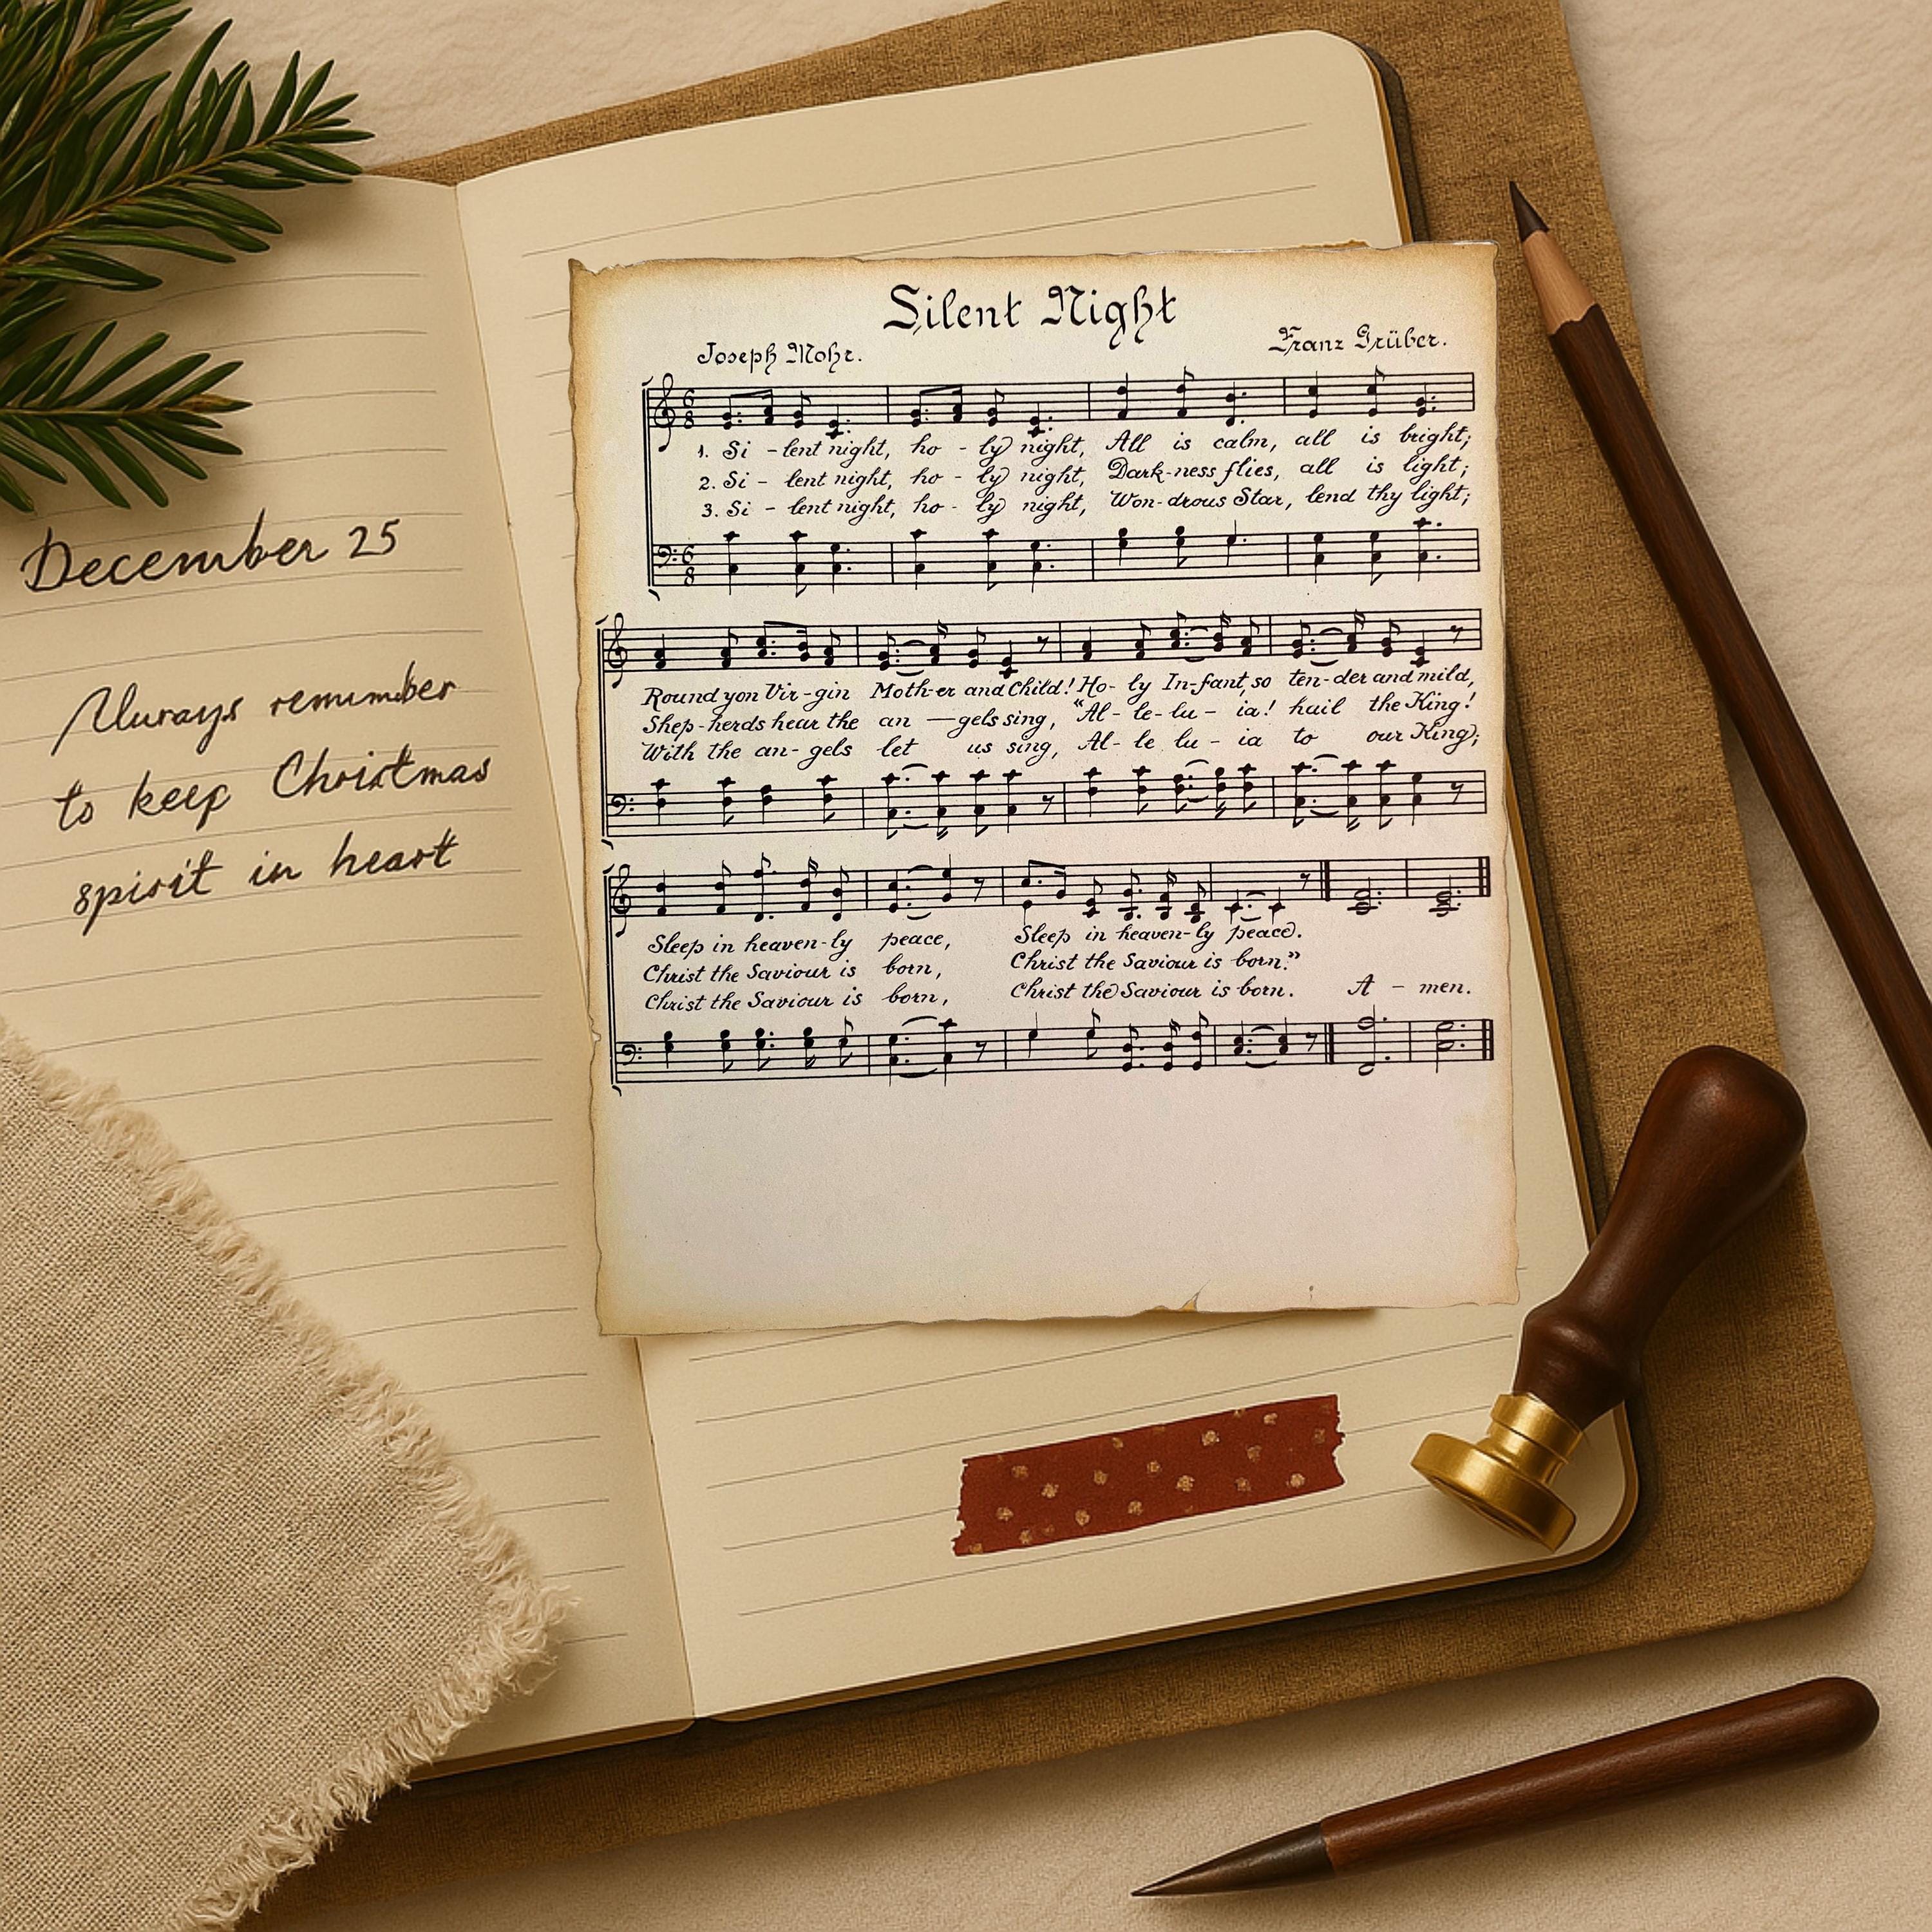 December 25
Always remember
to keep Christmas
spirit in heart
Silent Night
Joseph Mohr.
Franz Grüber.
1. Si - lent night, ho - ly night, All is calm, all is bright;
2. Si - lent night, ho - ly night, Dark-ness flies, all is light;
3. Si - lent night, ho - ly night, Won-drous Star, lend thy light;
Round yon Vir-gin Moth-er and Child! Ho- ly In-fant, so ten-der and mild,
Shep-herds hear the an — gels sing, "Al- le-lu - ia! hail the King!
With the an- gels let us sing, Al- le lu - ia to our King;
Sleep in heaven-ly peace, Sleep in heaven-ly peace.
Christ the Saviour is born, Christ the Saviour is born."
Christ the Saviour is born, Christ the Saviour is born. A - men.